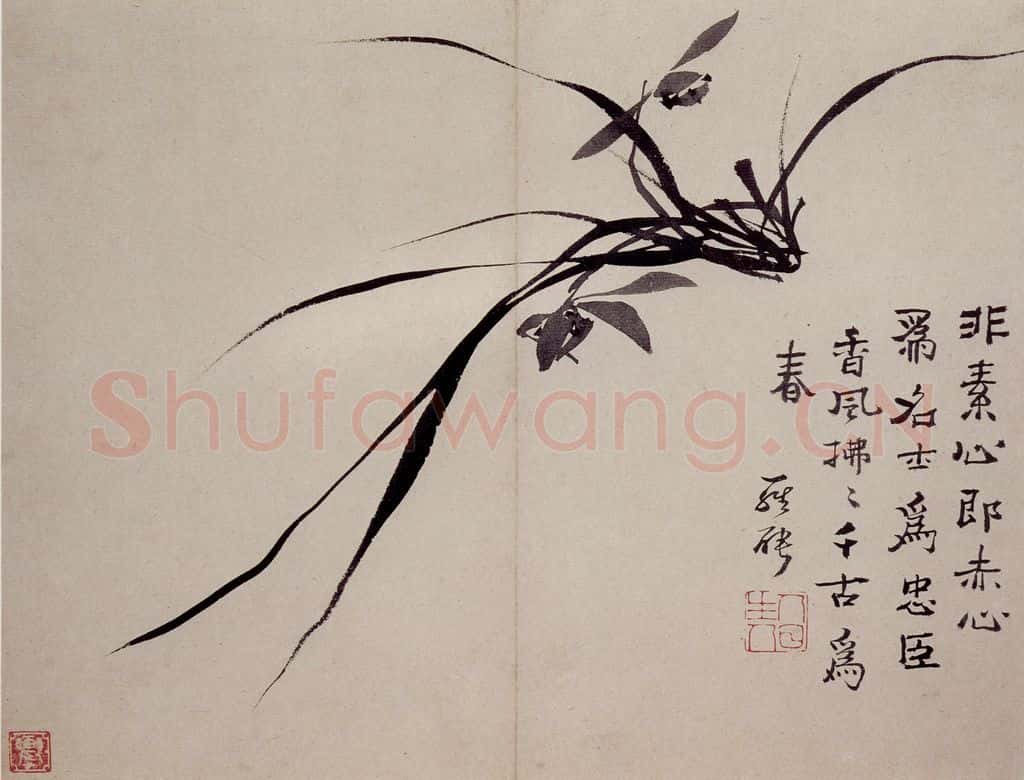 非素心即赤心
爲名士爲忠臣
香風拂〻千古爲
春
羅聘
Shufawang.CN